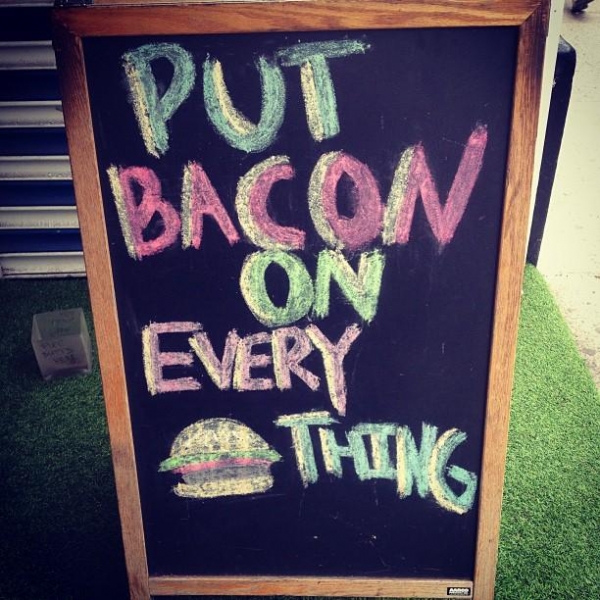 PUT
BACON
ON
EVERY
THING